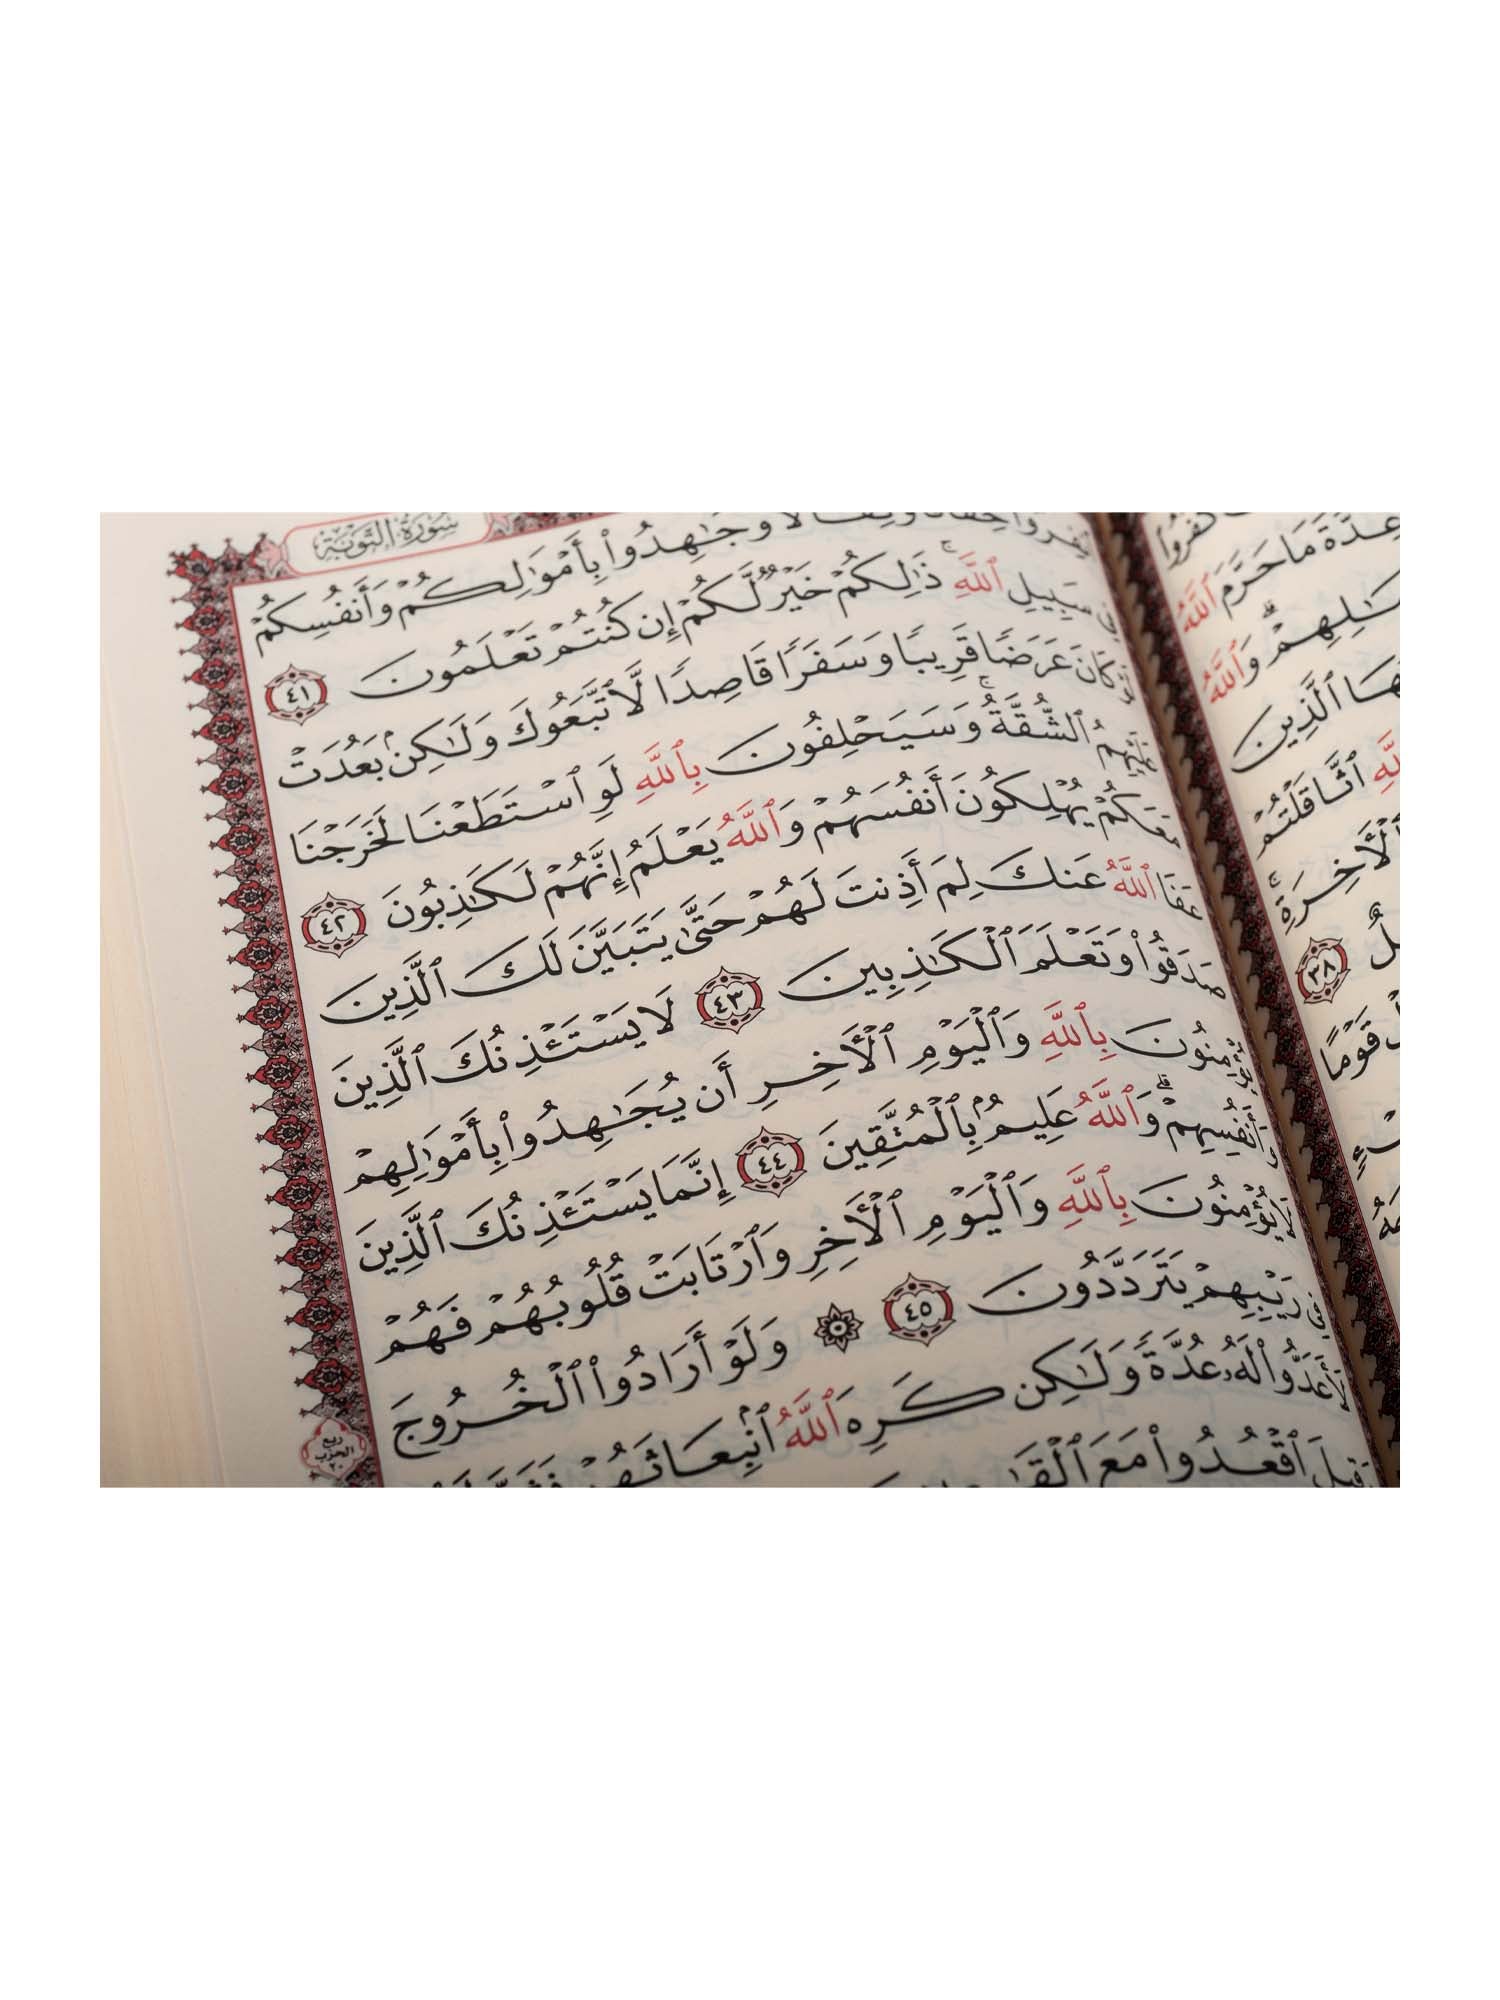 سُورَةُ التَّوْبَةِ
وَجَٰهِدُوا۟ بِأَمْوَٰلِكُمْ وَأَنفُسِكُمْ
فِى سَبِيلِ ٱللَّهِ ۚ ذَٰلِكُمْ خَيْرٌ لَّكُمْ إِن كُنتُمْ تَعْلَمُونَ ٤١
لَوْ كَانَ عَرَضًا قَرِيبًا وَسَفَرًا قَاصِدًا لَّٱتَّبَعُوكَ وَلَٰكِنۢ بَعُدَتْ
عَلَيْهِمُ ٱلشُّقَّةُ ۚ وَسَيَحْلِفُونَ بِٱللَّهِ لَوِ ٱسْتَطَعْنَا لَخَرَجْنَا
مَعَكُمْ يُهْلِكُونَ أَنفُسَهُمْ وَٱللَّهُ يَعْلَمُ إِنَّهُمْ لَكَٰذِبُونَ ٤٢
عَفَا ٱللَّهُ عَنكَ لِمَ أَذِنتَ لَهُمْ حَتَّىٰ يَتَبَيَّنَ لَكَ ٱلَّذِينَ
صَدَقُوا۟ وَتَعْلَمَ ٱلْكَٰذِبِينَ ٤٣ لَا يَسْتَـْٔذِنُكَ ٱلَّذِينَ
يُؤْمِنُونَ بِٱللَّهِ وَٱلْيَوْمِ ٱلْـَٔاخِرِ أَن يُجَٰهِدُوا۟ بِأَمْوَٰلِهِمْ
وَأَنفُسِهِمْ ۗ وَٱللَّهُ عَلِيمٌۢ بِٱلْمُتَّقِينَ ٤٤ إِنَّمَا يَسْتَـْٔذِنُكَ ٱلَّذِينَ
لَا يُؤْمِنُونَ بِٱللَّهِ وَٱلْيَوْمِ ٱلْـَٔاخِرِ وَٱرْتَابَتْ قُلُوبُهُمْ فَهُمْ
فِى رَيْبِهِمْ يَتَرَدَّدُونَ ٤٥ ۞ وَلَوْ أَرَادُوا۟ ٱلْخُرُوجَ
لَأَعَدُّوا۟ لَهُۥ عُدَّةً وَلَٰكِن كَرِهَ ٱللَّهُ ٱنۢبِعَاثَهُمْ
وَقِيلَ ٱقْعُدُوا۟ مَعَ
ربع
الحزب
٢٠
كَفَرُوا۟
عِدَّةَ مَا حَرَّمَ ٱللَّهُ
وَٱللَّهُ
ٱلَّذِينَ
ٱثَّاقَلْتُمْ
ٱلْـَٔاخِرَةِ ۚ
٣٨
قَوْمًا